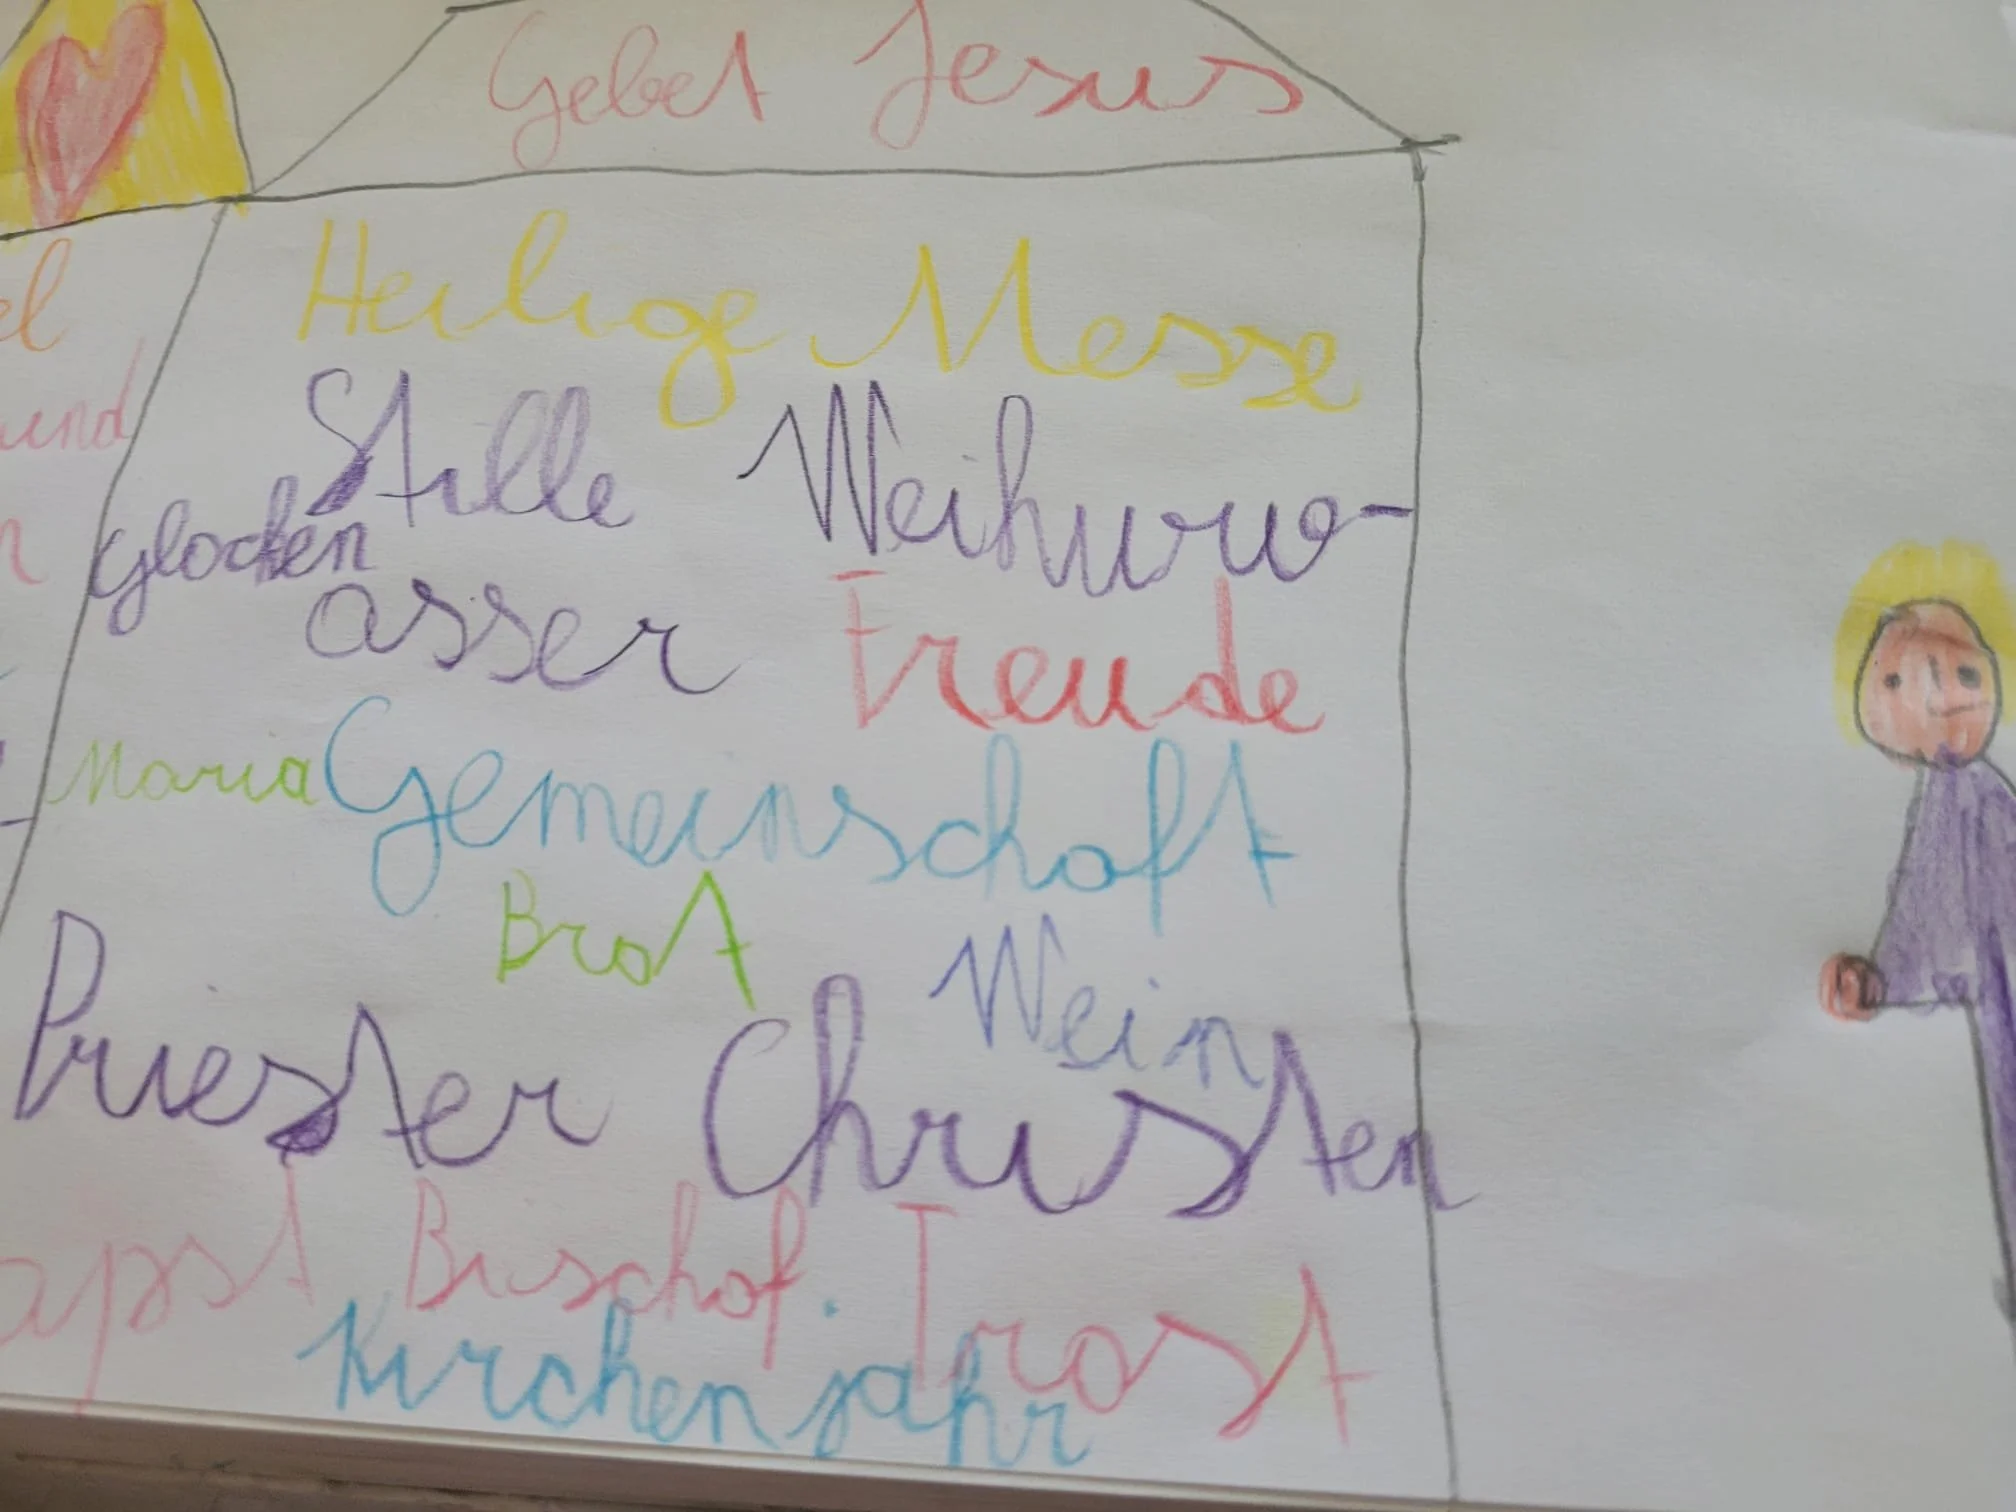 Gebet Jesus
Heilige Messe
Stille Weihwa-
Glocken
asser Freude
Maria Gemeinschaft
Brot Wein
Priester Christen
apst Bischof. Trost
Kirchenjahr
el
und
n